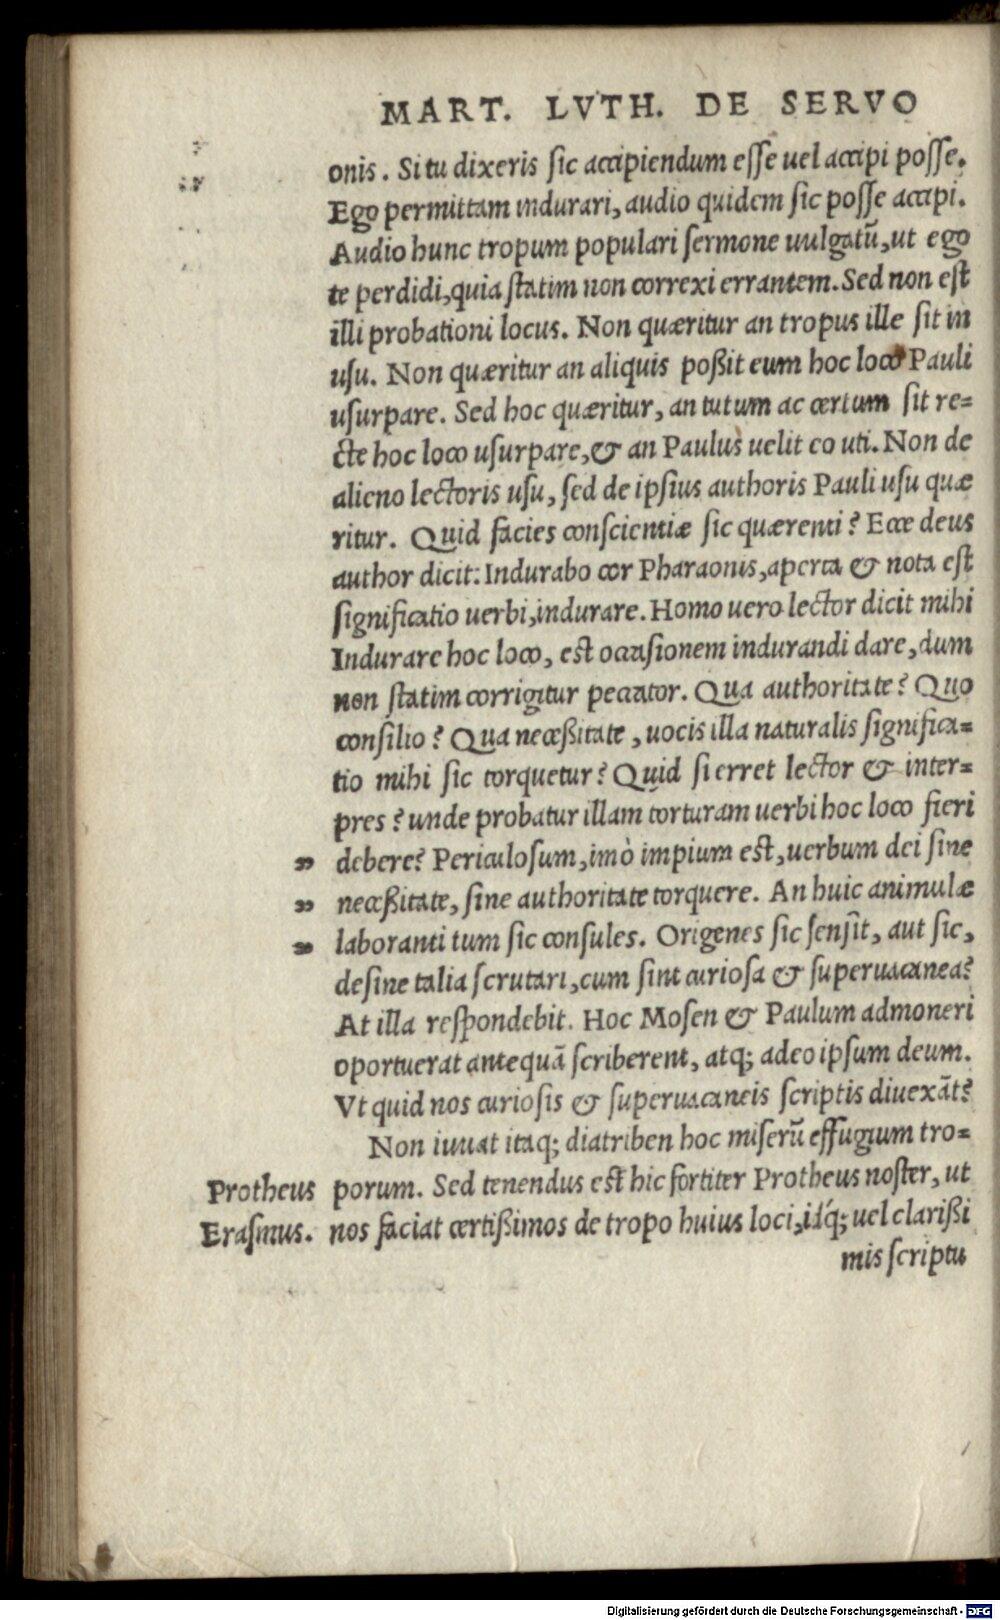 MART. LVTH. DE SERVO
onis. Si tu dixeris sic accipiendum esse uel accipi posse.
Ego permittam indurari, audio quidem sic posse accipi.
Audio hunc tropum populari sermone uulgatũ, ut ego
te perdidi, quia statim non correxi errantem. Sed non est
illi probationi locus. Non quæritur an tropus ille sit in
usu. Non quæritur an aliquis poßit eum hoc loco Pauli
usurpare. Sed hoc quæritur, an tutum ac certum sit re=
cte hoc loco usurpare, & an Paulus uelit eo uti. Non de
alieno lectoris usu, sed de ipsius authoris Pauli usu quæ
ritur. Quid facies conscientiæ sic quærenti? Ecce deus
author dicit: Indurabo cor Pharaonis, aperta & nota est
significatio uerbi, indurare. Homo uero lector dicit mihi
Indurare hoc loco, est occasionem indurandi dare, dum
non statim corrigitur peccator. Qua authoritate? Quo
consilio? Qua necæßitate, uocis illa naturalis significa=
tio mihi sic torquetur? Quid si erret lector & inter=
pres? unde probatur illam torturam uerbi hoc loco fieri
" debere? Periculosum, imò impium est, uerbum dei sine
" neceßitate, sine authoritate torquere. An huic animulæ
" laboranti tum sic consules. Origenes sic sensit, aut sic,
desine talia scrutari, cum sint curiosa & superuacanea?
At illa respondebit. Hoc Mosen & Paulum admoneri
oportuerat antequã scriberent, atq; adeo ipsum deum.
Vt quid nos curiosis & superuacaneis scriptis diuexãt?
Non iuuat itaq; diatriben hoc miserũ effugium tro=
Protheus porum. Sed tenendus est hic fortiter Protheus noster, ut
Erasmus. nos faciat certißimos de tropo huius loci, idq́; uel clarißi
mis scriptu
Digitalisierung gefördert durch die Deutsche Forschungsgemeinschaft - DFG